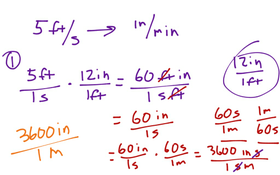 5 ft/s → in/min
① 5ft/1s · 12in/1ft = 60 ft in/1 s ft
12in/1ft
= 60 in/1s
60s/1m 1m/60s
3600 in/1 m
= 60in/1s · 60s/1m = 3600 in s/1 s m